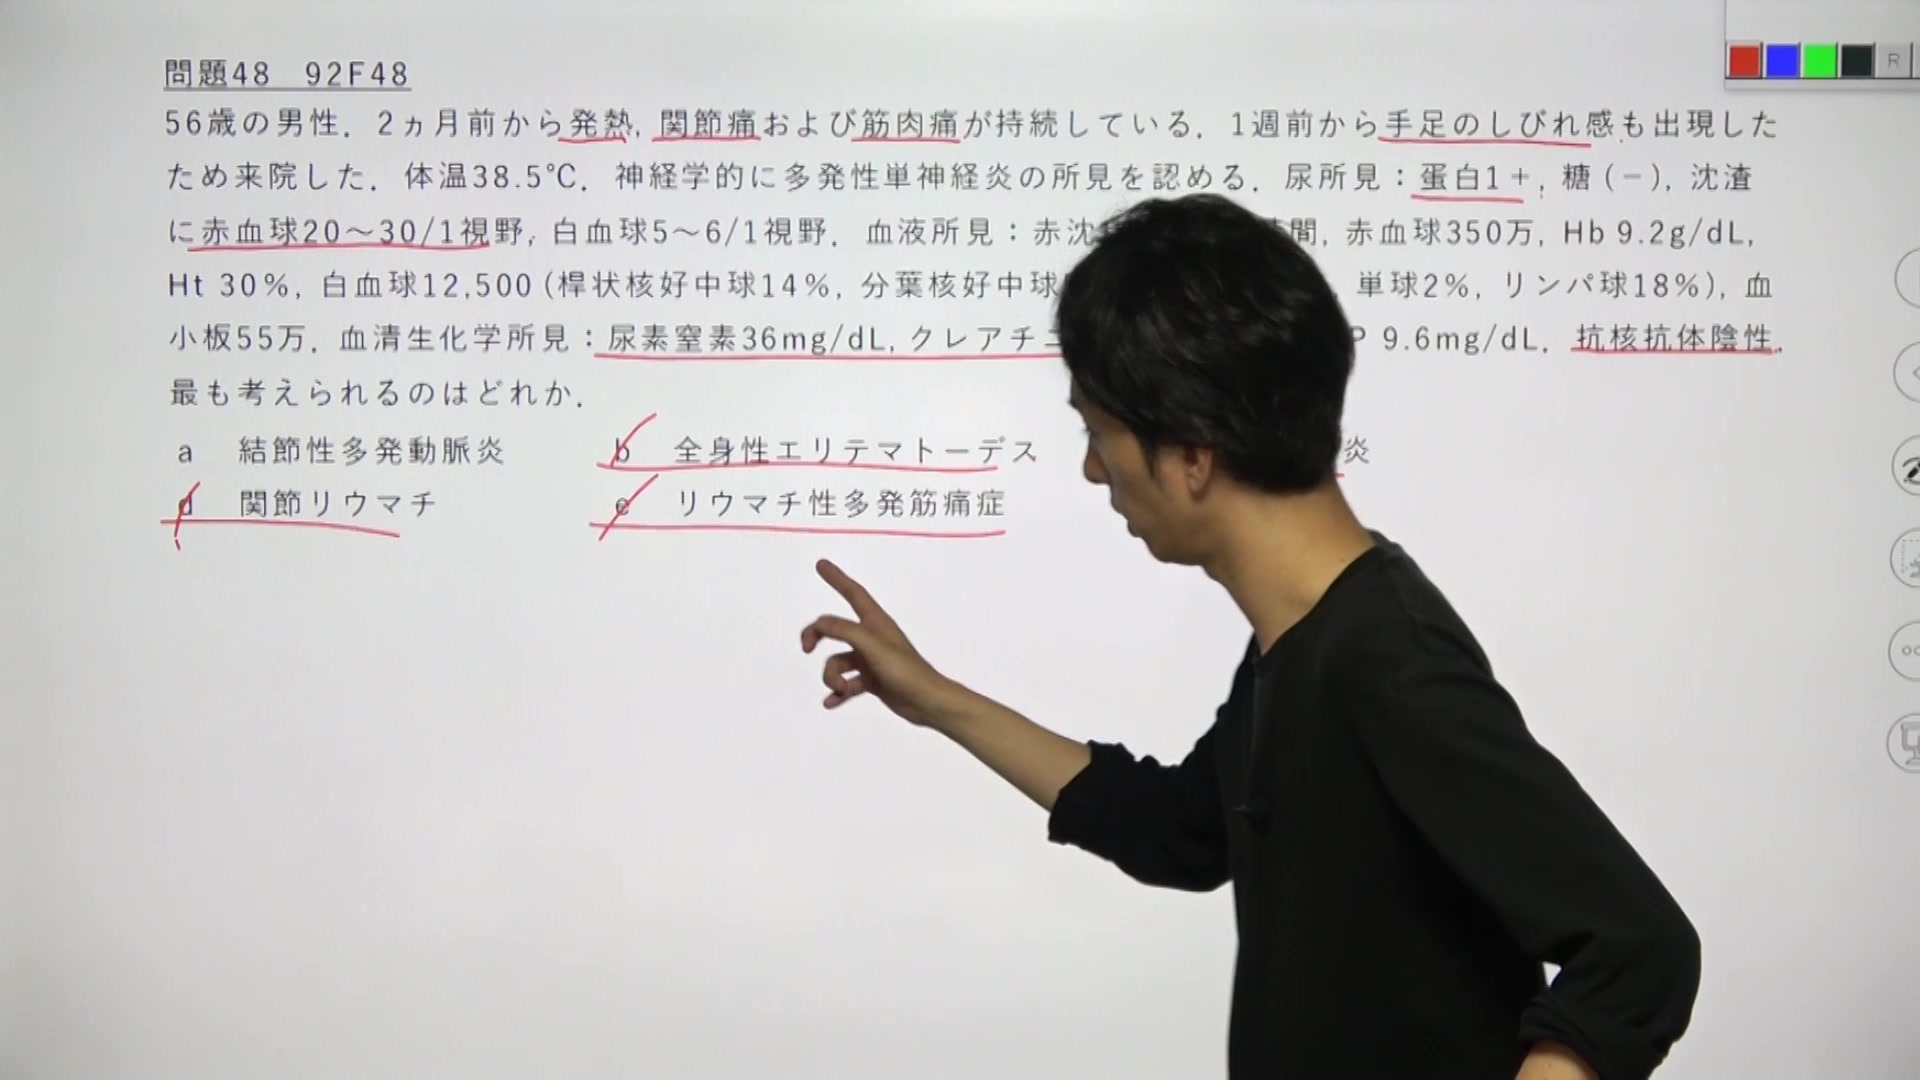 問題48 92F48
56歳の男性．2ヵ月前から発熱，関節痛および筋肉痛が持続している．1週前から手足のしびれ感も出現した
ため来院した．体温38.5℃．神経学的に多発性単神経炎の所見を認める．尿所見：蛋白1＋，糖（－），沈渣
に赤血球20～30/1視野，白血球5～6/1視野．血液所見：赤沈 間，赤血球350万，Hb 9.2g/dL，
Ht 30％，白血球12,500（桿状核好中球14％，分葉核好中球 単球2％，リンパ球18％），血
小板55万．血清生化学所見：尿素窒素36mg/dL，クレアチニ P 9.6mg/dL．抗核抗体陰性．
最も考えられるのはどれか．
a 結節性多発動脈炎 b 全身性エリテマトーデス 炎
d 関節リウマチ e リウマチ性多発筋痛症
R